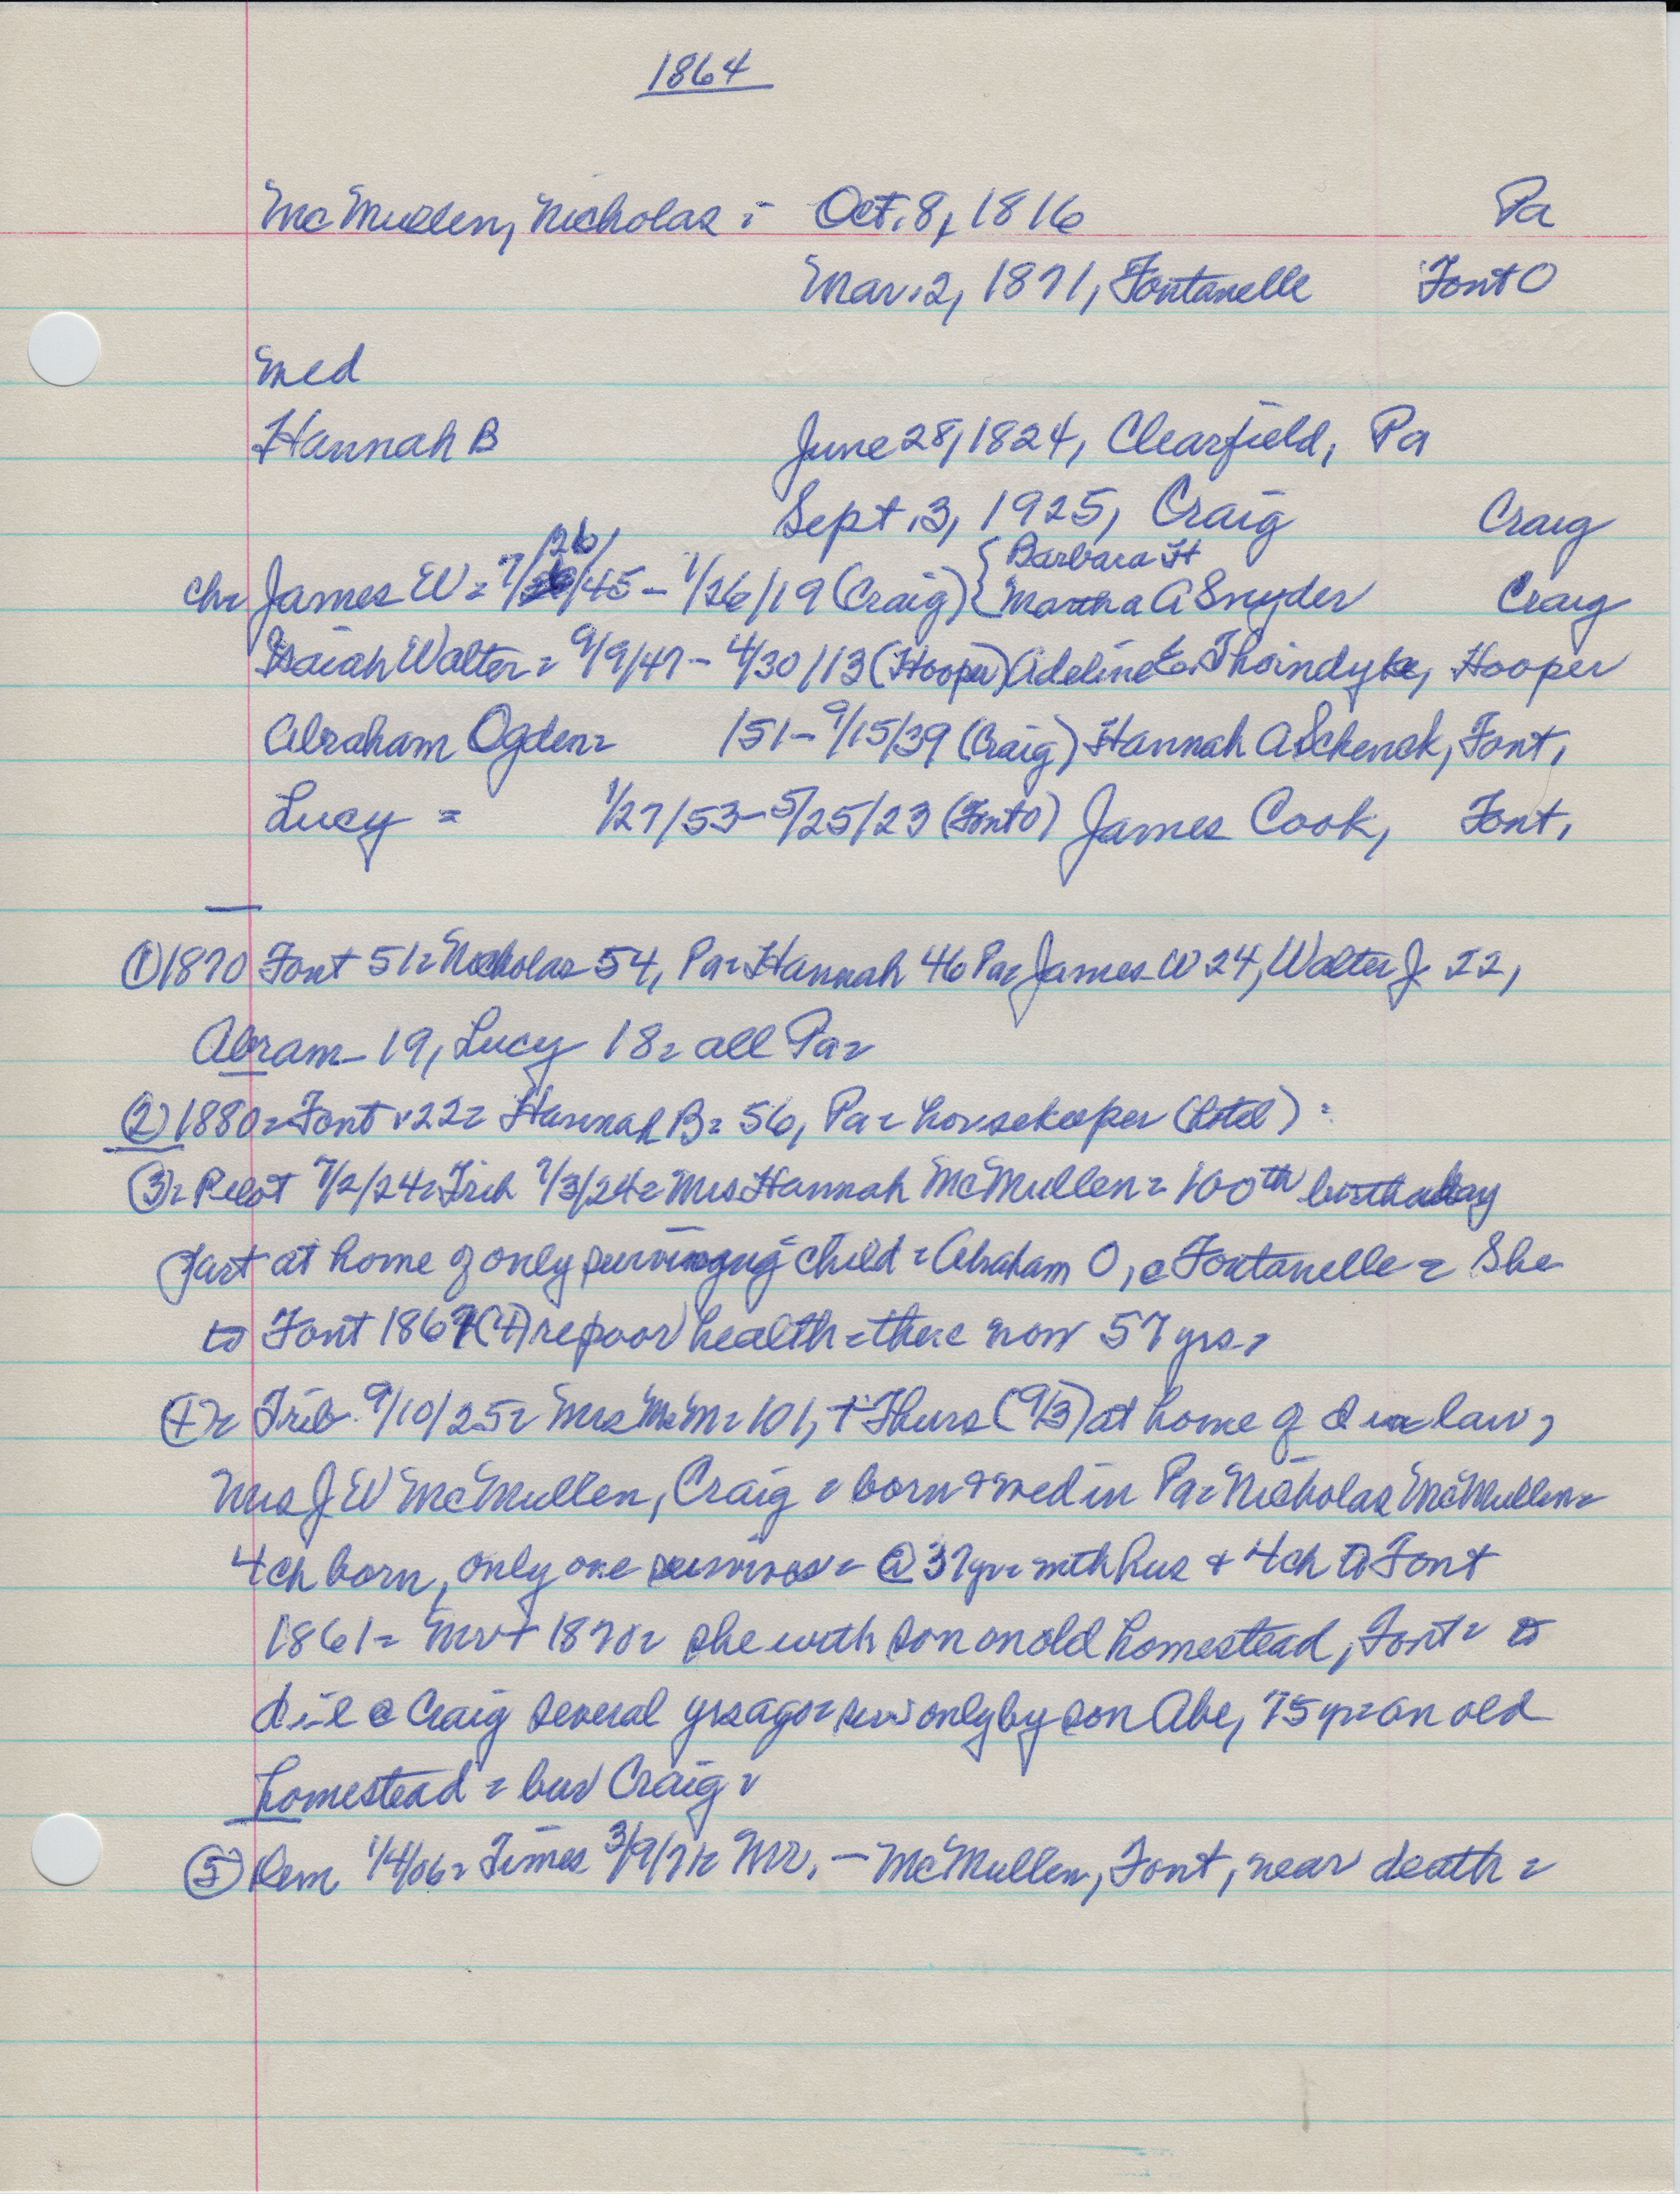 1864
McMullen, Nicholas = Oct. 8, 1816 Pa
Mar. 2, 1871, Fontanelle Font O
med
Hannah B June 28, 1824, Clearfield, Pa
Sept. 3, 1925, Craig Craig
26/ { Barbara H
ch= James W = 7/26/45 - 1/26/19 (Craig) { Martha A Snyder Craig
Isaiah Walter = 9/9/47 - 4/30/13 (Hooper) Adeline E. Thorndyke, Hooper
Abraham Ogden= /51 - 9/15/39 (Craig) Hannah A Schenck, Font,
Lucy = 1/27/53 - 5/25/23 (Font O) James Cook, Font,
① 1870 Font 51= Nicholas 54, Pa= Hannah 46 Pa= James W 24, Walter J 22,
Abram 19, Lucy 18= all Pa=
② 1880= Font 22= Hannah B= 56, Pa= housekeeper (hotel) =
③= Pilot 7/2/24= Trib 7/3/24= Mrs Hannah McMullen= 100th birthday
at home of only surviving child = Abraham O, @ Fontanelle = She
to Font 1867 (?) re poor health = there now 57 yrs =
④= Trib 9/10/25= Mrs McM= 101, + Thurs (9/3) at home of d in law,
Mrs J W McMullen, Craig = born + med in Pa= Nicholas McMullen=
4 ch born, only one survives = @ 37 yr= with hus + 4 ch to Font
1861= Mr + 1870= she with son on old homestead, Font= to
d-i-l @ Craig several yrs ago= surv only by son Abe, 75 yr= on old
homestead = bur Craig =
⑤ Dem 1/4/06= Times 3/9/71= Mr. — McMullen, Font, near death =